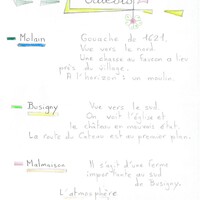 Molain Gouache de 1621.
Vue vers le nord.
Une chasse au faucon a lieu
près du village.
A l'horizon : un moulin
Busigny Vue vers le sud
On voit l'église et
le château en mauvais état.
La route du Cateau est au premier plan.
Malmaison Il s'agit d'une ferme
importante au sud
de Busigny.
L'atmosphère